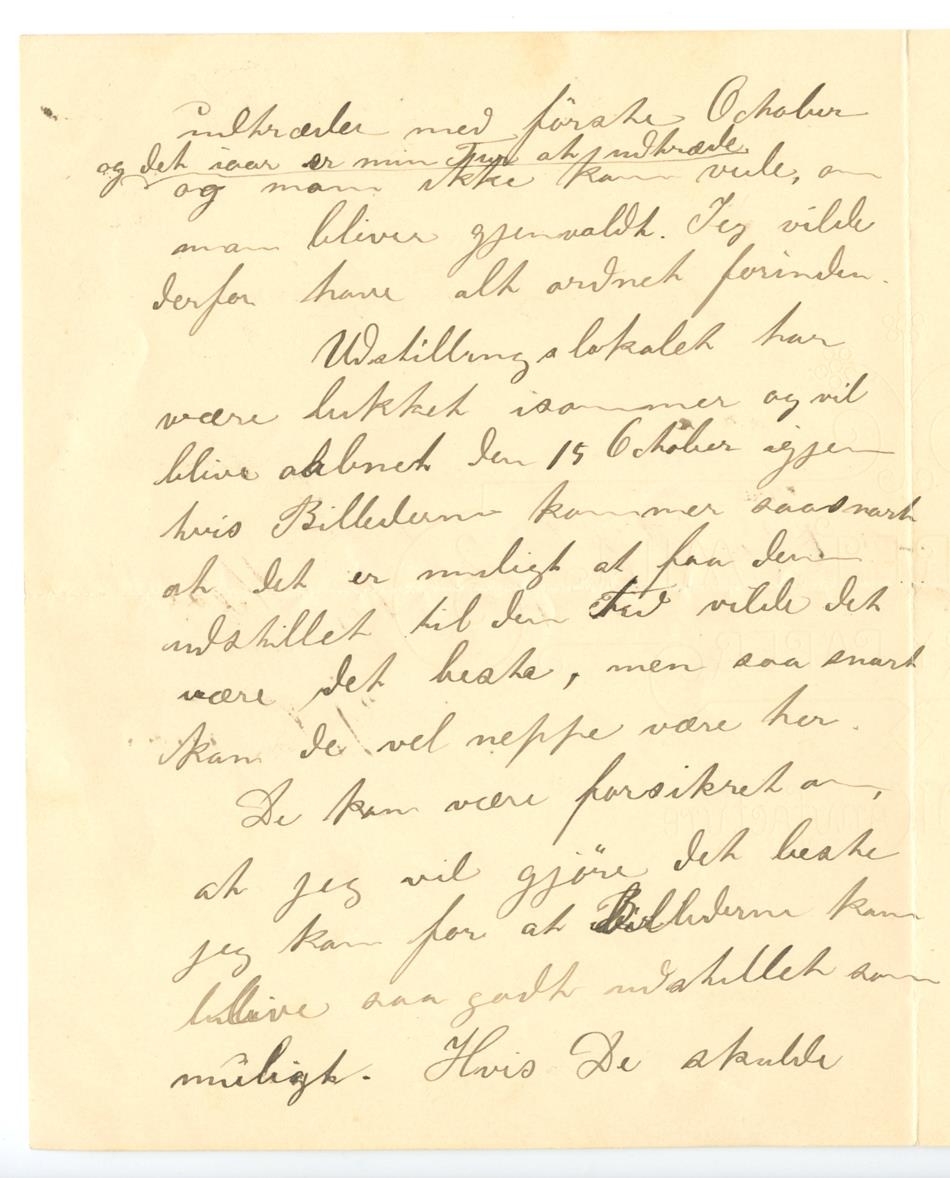 indtræder med förste October
og det iaar er min Tur at udtræde
og man ikke kan vide, om
man bliver gjenvaldt. Jeg vilde
derfor have alt ordnet forinden.
Udstillingslokalet har
være lukket isommer og vil
blive aabnet den 15 October igjen
hvis Billederne kommer saasnart
at det er muligt at faa dem
udstillet til den Tid vilde det
være det beste, men saa snart
kan de vel neppe være her.
De kan være forsikret om,
at jeg vil gjöre det beste
jeg kan for at Billederne kan
blive saa godt udstillet som
muligt. Hvis De skulde